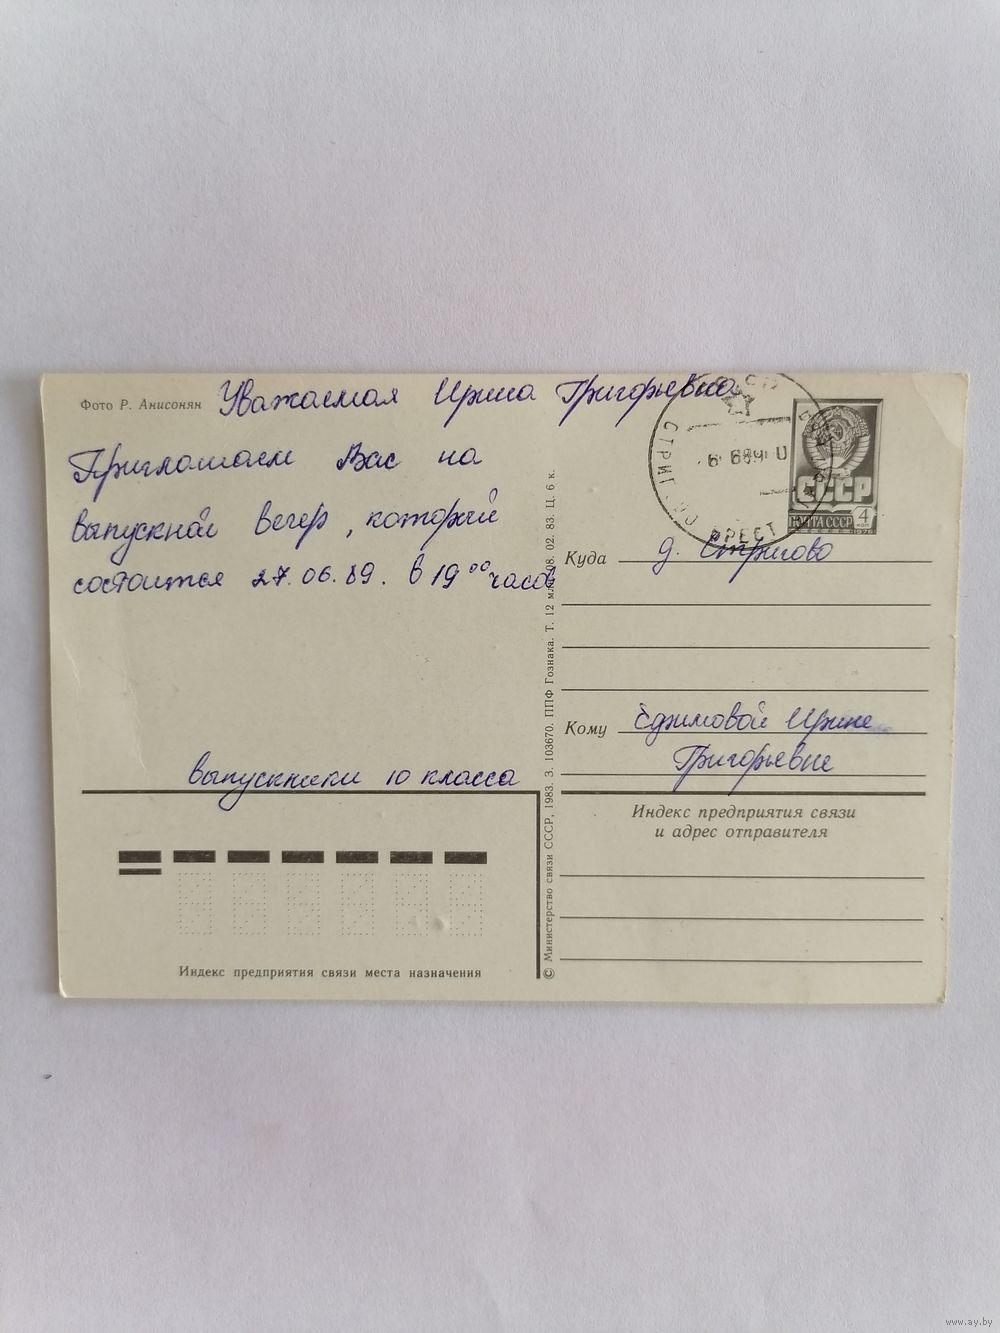 Фото Р. Анисонян
Уважаемая Ирина Григорьевна
Приглашаем Вас на
выпускной вечер, который
состоится 27.06.89. в 19⁰⁰ часов
выпускники 10 класса
Индекс предприятия связи места назначения
© Министерство связи СССР, 1983. З. 103670. ППФ Гознака. Т. 12 млн. 08. 02. 83. Ц. 6 к.
БРЕСТ
СССР
ПОЧТА СССР
4
КОП
1976
Куда д. Стригово
Кому Едимовой Ирине
Григорьевне
Индекс предприятия связи
и адрес отправителя
www.ay.by